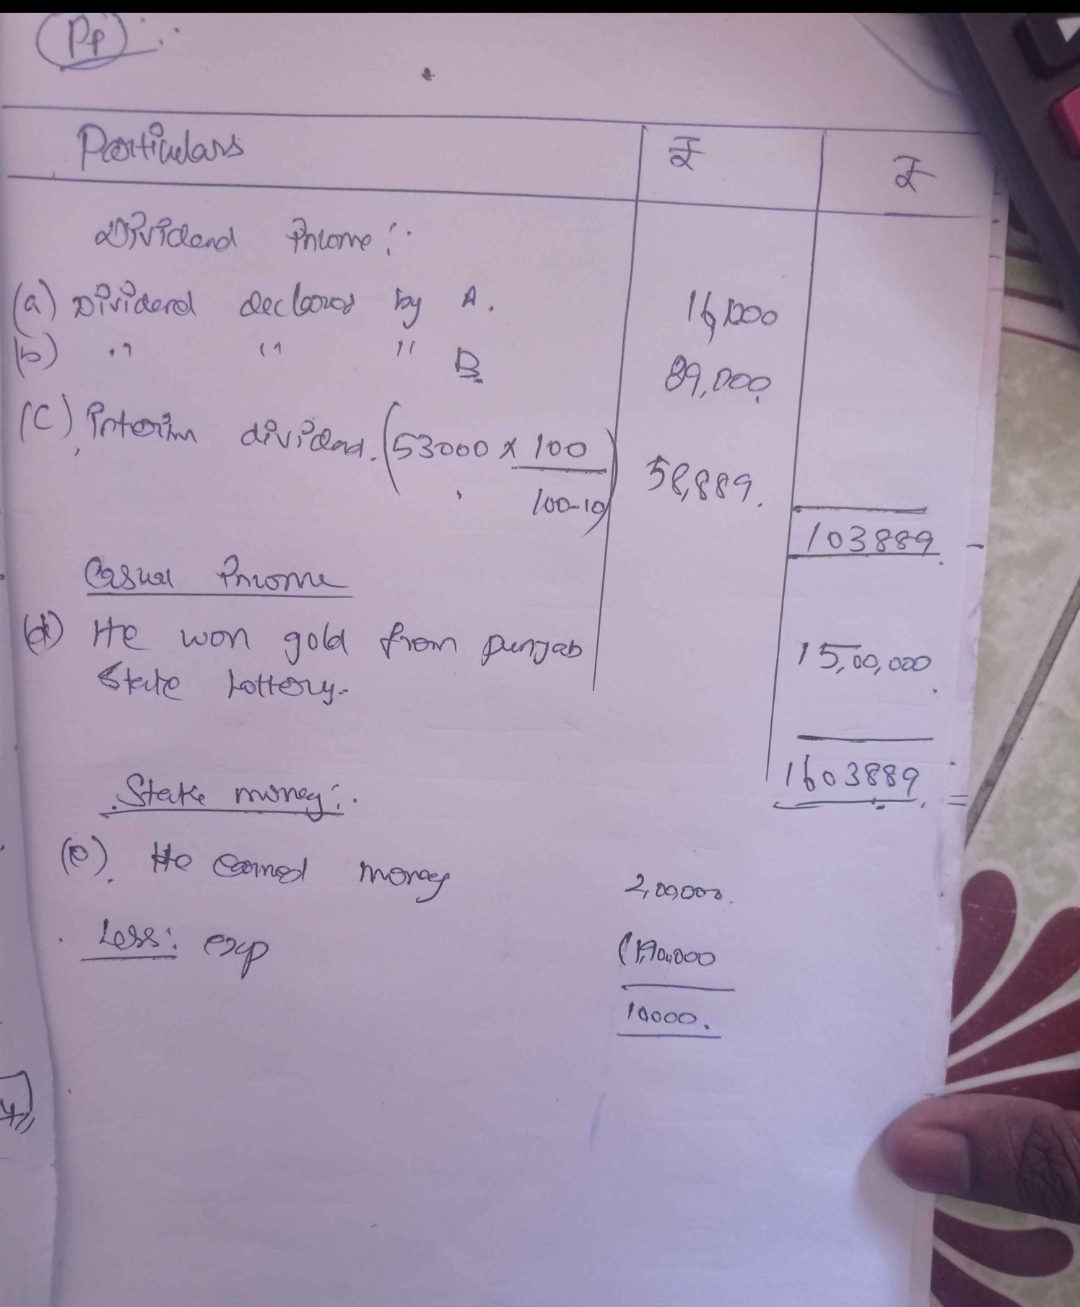 Pf :.
Particulars ₹ ₹
Dividend Income :.
(a) Dividend declared by A. 16,000
(b) " " " B. 29,000
(c) Interim dividend. (53000 × 100 / 100-10) 58,889.
103889.
Casual Income
(d) He won gold from punjab 15,00,000
State Lottery.
1603889.
Stake money :.
(e). He earned money 2,00,000.
Less: exp (1,90,000
10000.